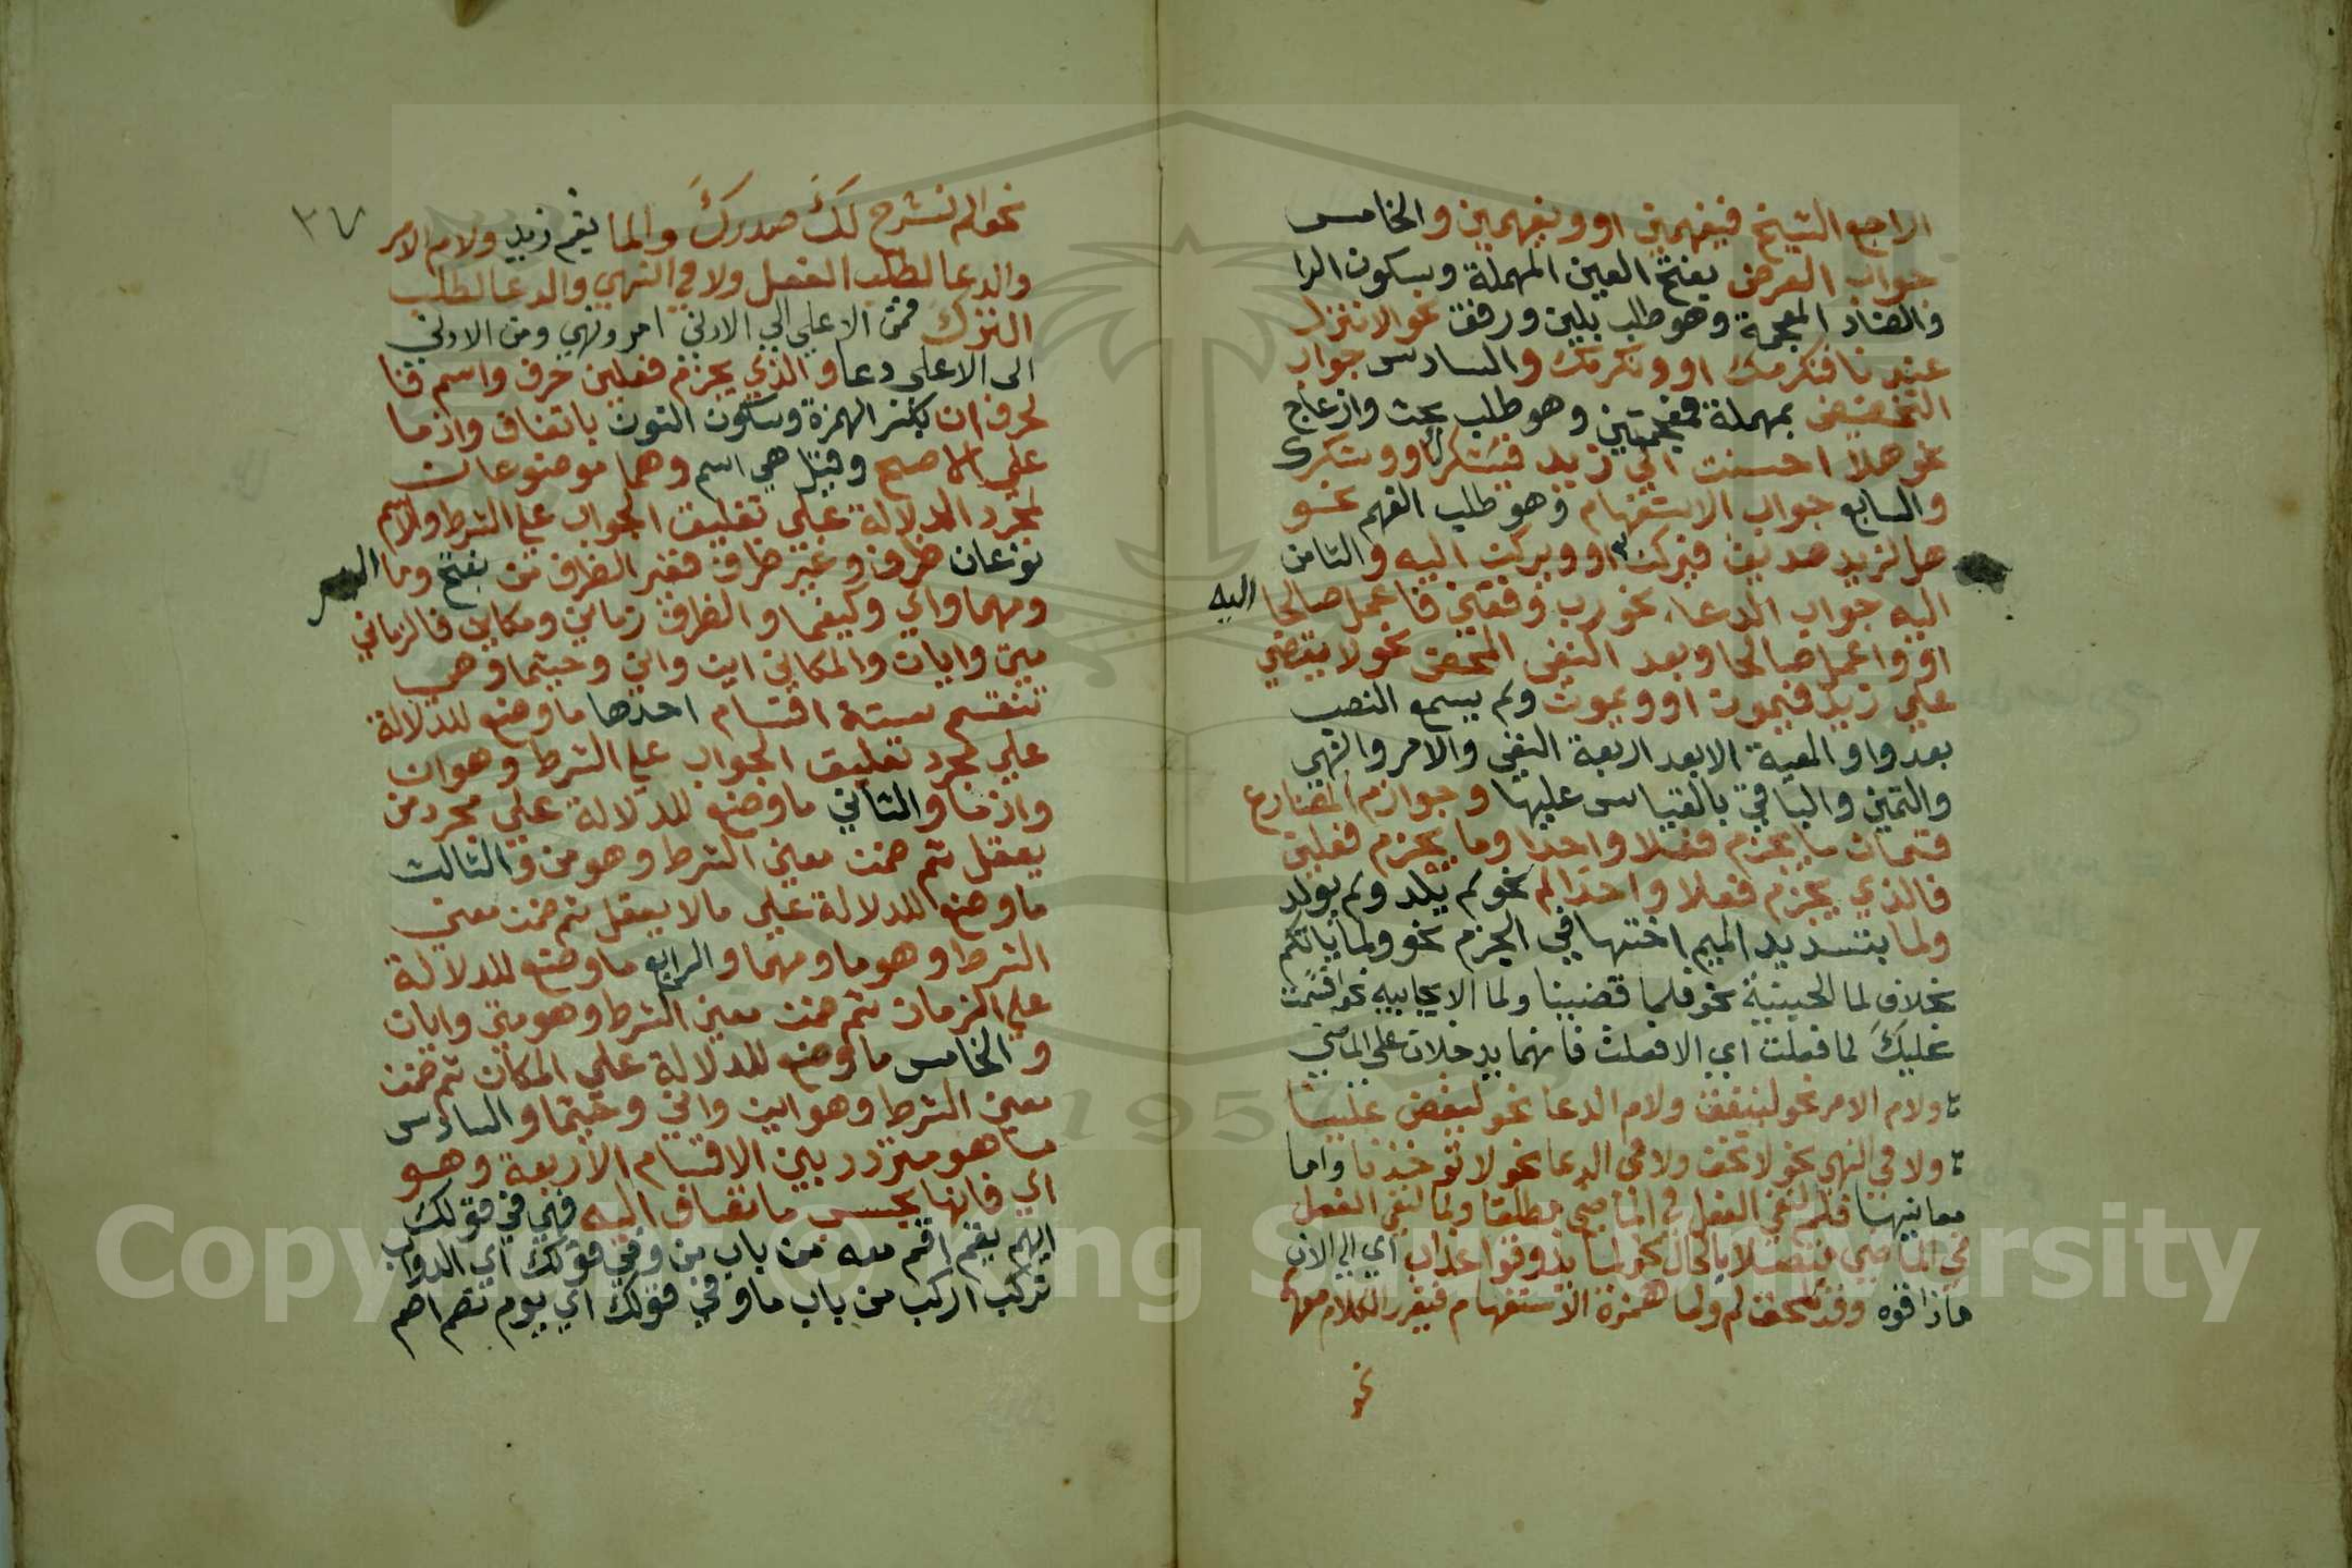 اراجع الشيخ فيفهمني او ويفهمني والخامس
جواب العرض بفتح العين المهملة وسكون الرا
والضاد المعجمة وهو طلب بلين ورفق نحو الا تنزل
عندنا فنكرمك او ونكرمك والسادس جواب
التحضيض بمهملة فمعجمتين وهو طلب بحث وازعاج
نحو هلا احسنت الى زيد فيشكرك او ويشكرك
والسابع جواب الاستفهام وهو طلب الفهم نحو
هل لزيد صديق فيركن او ويركن اليه والثامن
اليه جواب الدعاء نحو رب وفقني فاعمل صالحا
اليه
او واعمل صالحا وبعد النفى المحض نحو لا يقضي
علي زيد فيموت او ويموت ولم يسمع النصب
بعد واو المعية الا بعد اربعة النفي والامر والنهي
والتمني والباقي بالقياس عليها وجوازم المضارع
قسمان ما يجزم فعلا واحدا وما يجزم فعلين
فالذي يجزم فعلا واحدا لم نحو لم يلد ولم يولد
ولما بتشديد الميم اختها في الجزم نحو ولما ياتكم
بخلاف لما الحينية نحو فلما قضينا ولما الايجابيه نحو اقسمت
عليك لما فعلت اي الا فعلت فانهما يدخلان على الماضي
ولام الامر نحو لينفق ولام الدعا نحو ليقض علينا
ولا في النهي نحو لا تخف ولا في الدعا نحو لا تؤخذنا واما
معانيها فلم لنفي الفعل في الماضي مطلقا ولما لنفي الفعل
في الماضي متصلا بالحال نحو لما يذوقوا عذاب اي الى الان
ماذاقوه وقد تلحق لم ولما همزة الاستفهام فيقرر الكلام معهما
نحو
نحو الم نشرح لك صدرك والما يقم زيد ولام الامر
٣٧
والدعا لطلب الفعل ولا في النهي والدعا لطلب
الترك فمن الاعلي الي الادني امر ونهي ومن الادني
الى الاعلي دعا والذي يجزم فعلين حرف واسم فا
لحرف ان بكسر الهمزة وسكون النون باتفاق واذما
علي الاصح وقيل هي اسم وهما موضوعان
لمجرد الدلالة علي تعليق الجواب علي الشرط والاسم
نوعان ظرف وغير ظرف فغير الظرف من بفتح وما
ومهما واي وكيفما والظرف زماني ومكاني فالزماني
متي وايان والمكاني اين واني وحيثما وهي
تنقسم ستة اقسام احدها ما وضع للدلالة
علي مجرد تعليق الجواب علي الشرط وهو ان
واذما والثاني ما وضع للدلالة علي مجرد من
يعقل ثم ضمن معني الشرط وهو من والثالث
ما وضع للدلالة علي مالا يعقل ثم ضمن معني
الشرط وهو ما ومهما والرابع ما وضع للدلالة
علي الزمان ثم ضمن معني الشرط وهو متي وايان
والخامس ما وضع للدلالة علي المكان ثم ضمن
معني الشرط وهو اين واني وحيثما والسادس
ما هو متردد بين الاقسام الاربعة وهو
اي فانها بحسب ما تضاف اليه فهي في قولك
ايهم يقم اقم معه من باب من وفي قولك اي الدواب
تركب اركب من باب ما وفي قولك اي يوم تصم اصم
Copyright © King Saud University
1957